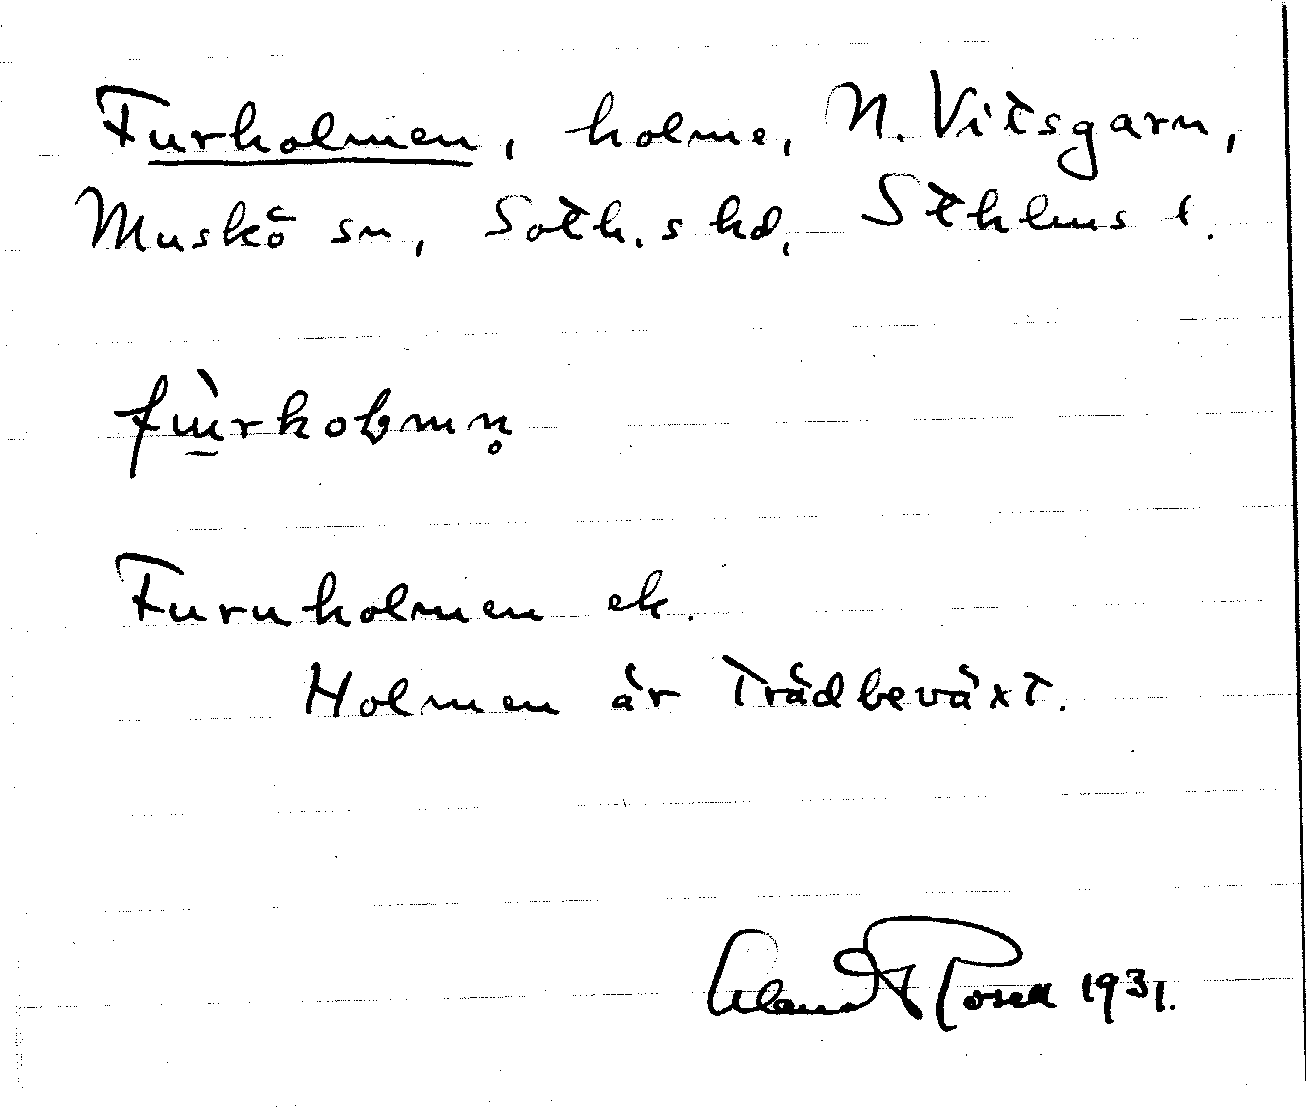 Furholmen, holme, N. Vitsgarn,
Muskö sn, Soth.s hd, Sthlms l.
fùrholmn̥
Furuholmen ek.
Holmen är trädbeväxt.
Rosell 1931.